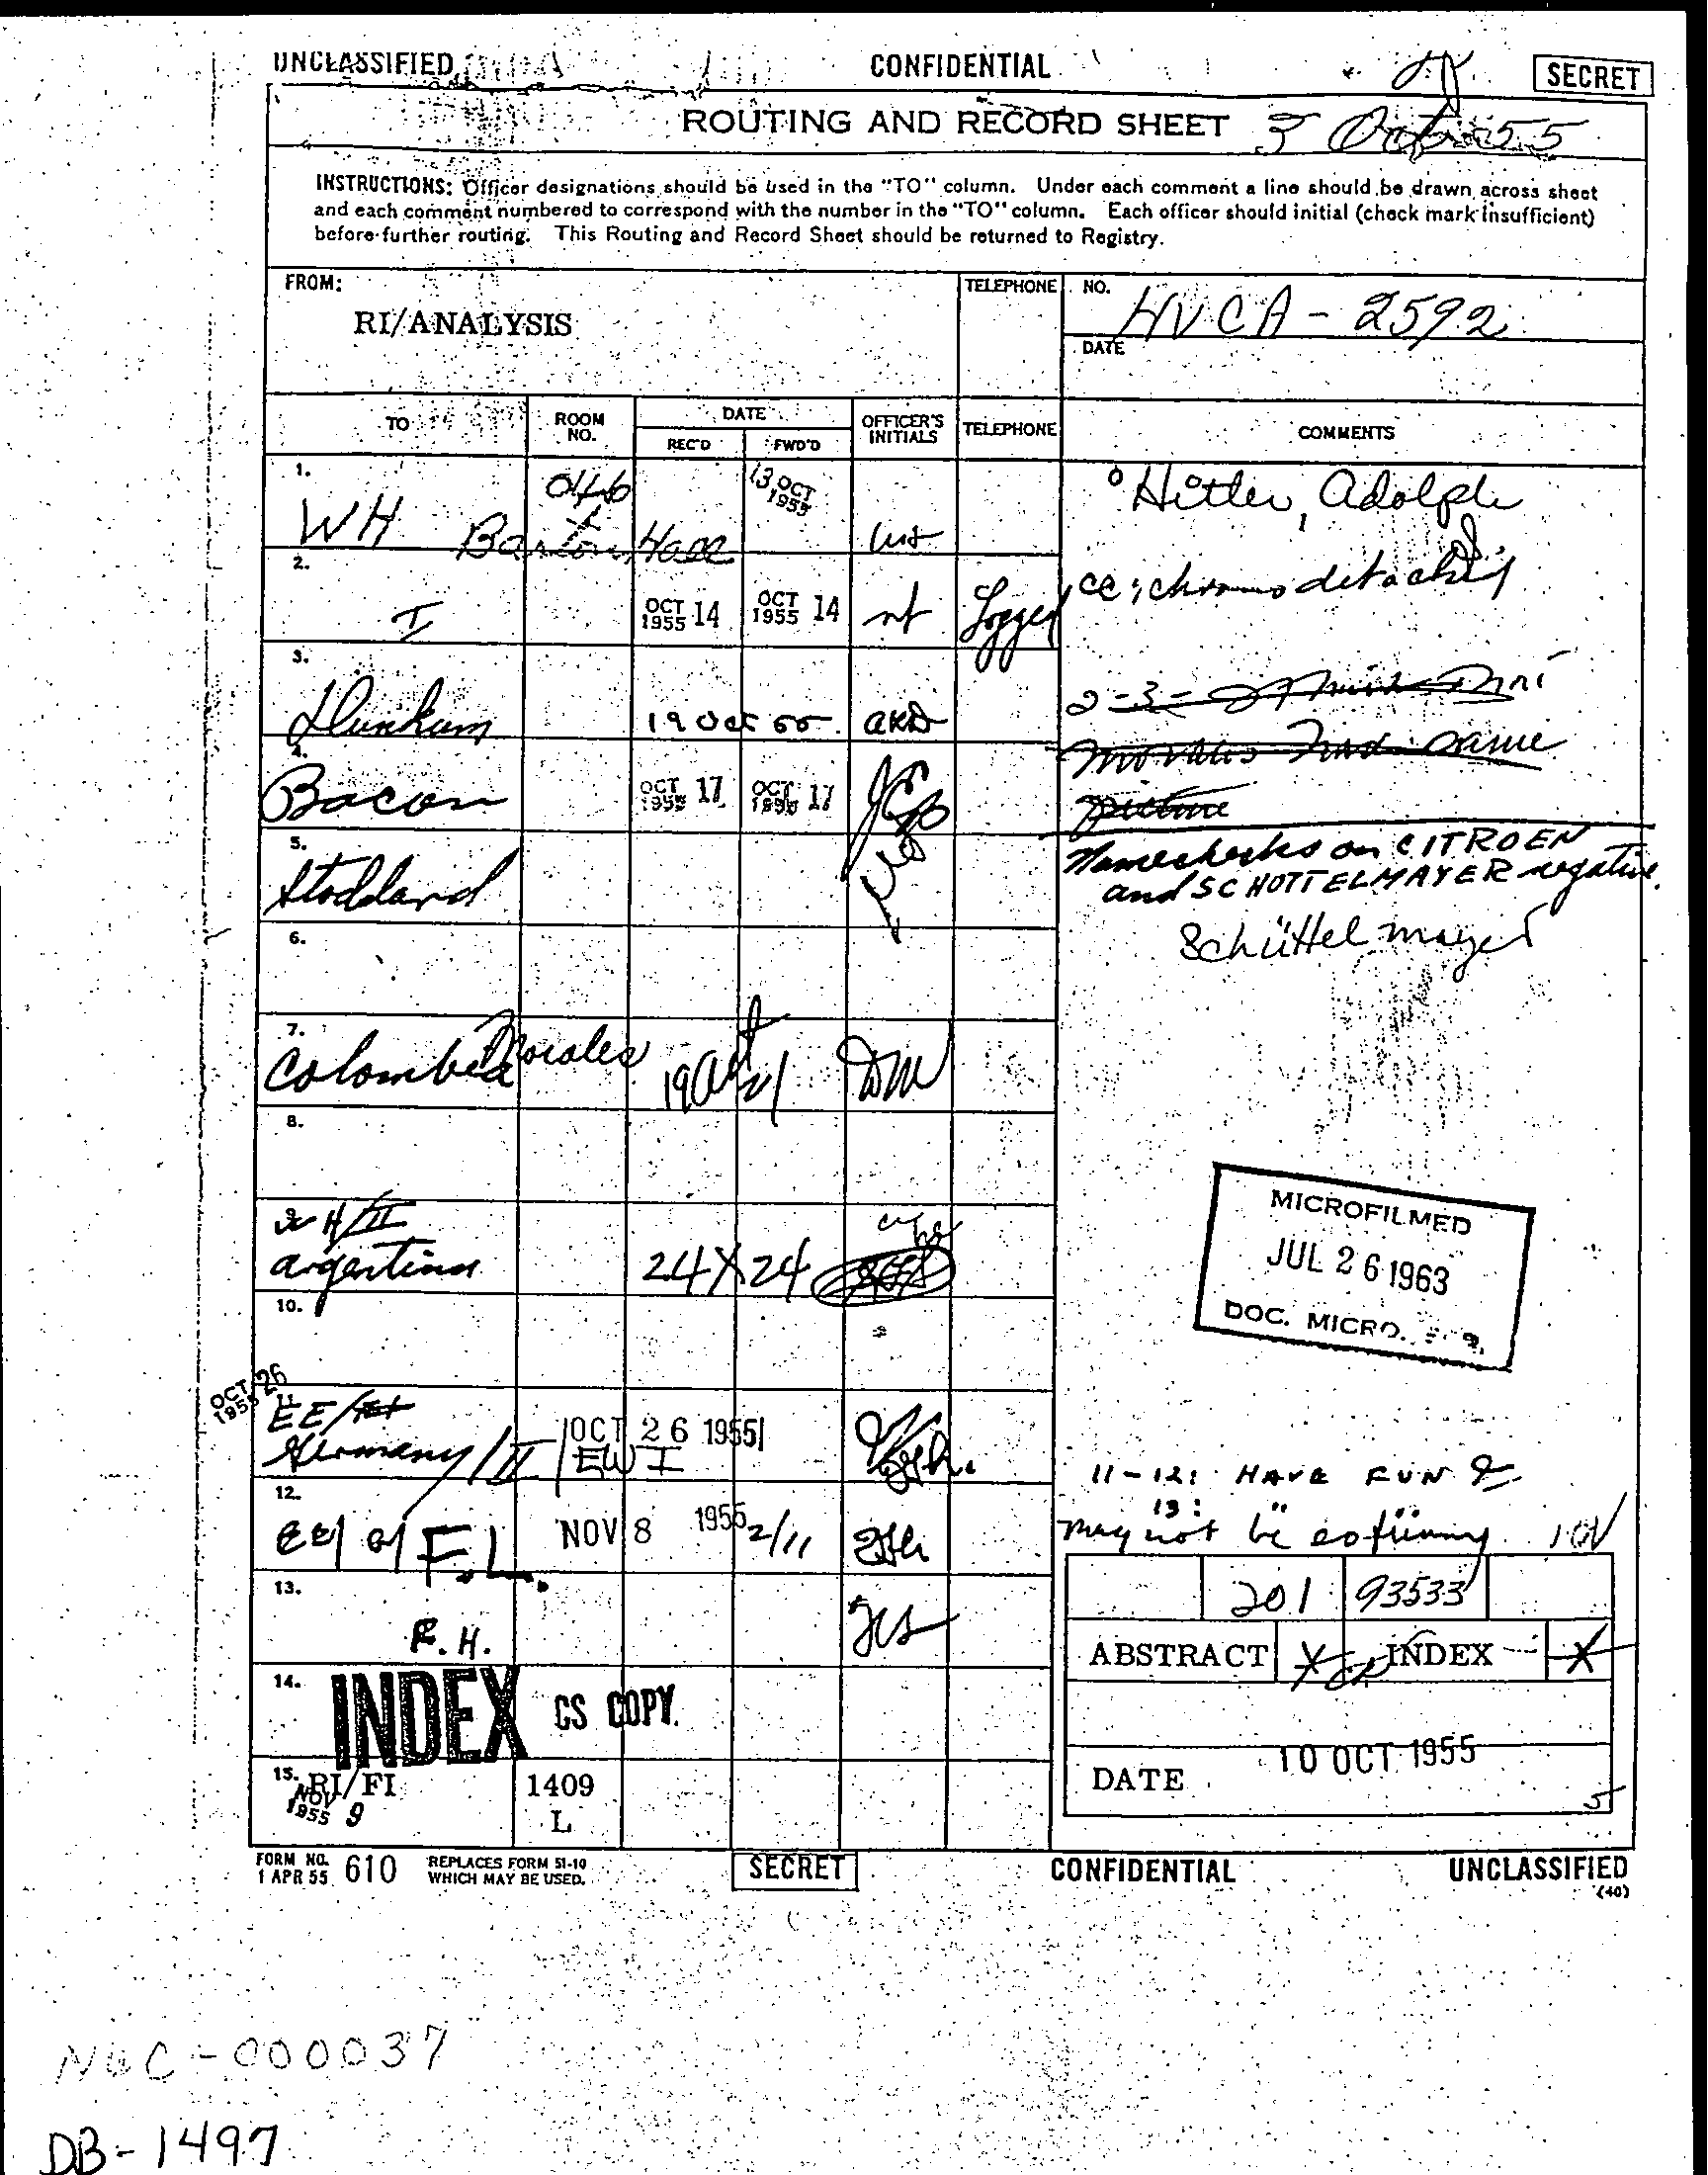 UNCLASSIFIED CONFIDENTIAL SECRET
ROUTING AND RECORD SHEET 3 Oct 55
INSTRUCTIONS: Officer designations should be used in the "TO" column. Under each comment a line should be drawn across sheet
and each comment numbered to correspond with the number in the "TO" column. Each officer should initial (check mark insufficient)
before further routing. This Routing and Record Sheet should be returned to Registry.
FROM:
RI/ANALYSIS
TELEPHONE
NO. HVCA-2592
DATE
TO
ROOM NO.
DATE
REC'D FWD'D
OFFICER'S INITIALS
TELEPHONE
COMMENTS
1. WH Barton Hall
13 OCT 1955
Hitler, Adolph
2. I
OCT 1955 14 OCT 1955 14 Logged
cc: chrono detached
3.
19 Oct 55 AKD
2-3-
name
picture
4. Bacon
OCT 1955 17 OCT 1955 17
5. Stoddard
Namechecks on CITROEN
and SCHOTTELMAYER negative.
Schüttelmayer
6.
7. Colombia Morales 19 Oct 21 DM
8.
WH/II
Argentina 24 X 24
10.
MICROFILMED
JUL 26 1963
DOC. MICRO.
OCT 1955 26
EE/
Germany/II OCT 26 1955
EWI
11-12: HAVE FUN
12. NOV 8 1955 2/11
F.L.
13:
may not be so funny.
13. R.H.
201 93533
ABSTRACT X INDEX X
14. INDEX CS COPY
DATE 10 OCT 1955
15. RI/FI 1409
L
NOV 1955 9
FORM NO. 610 REPLACES FORM 51-10 SECRET CONFIDENTIAL UNCLASSIFIED
1 APR 55 WHICH MAY BE USED. (40)
NWC-000037
DB-1497